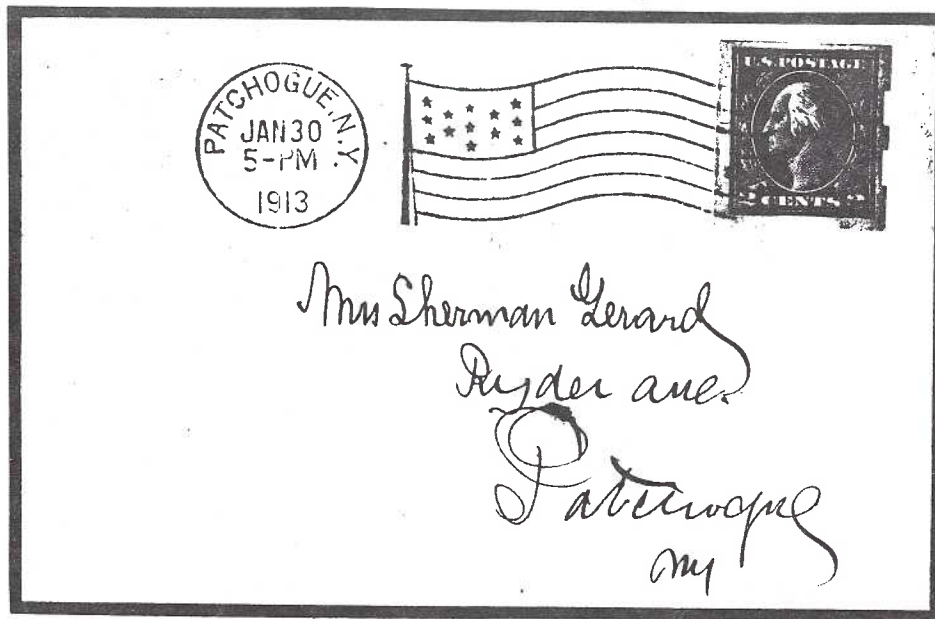 PATCHOGUE, N.Y.
JAN 30
5-PM
1913
U.S. POSTAGE
2 CENTS 2
Mrs Sherman Gerard
Ryder ave.
Patchogue
NY